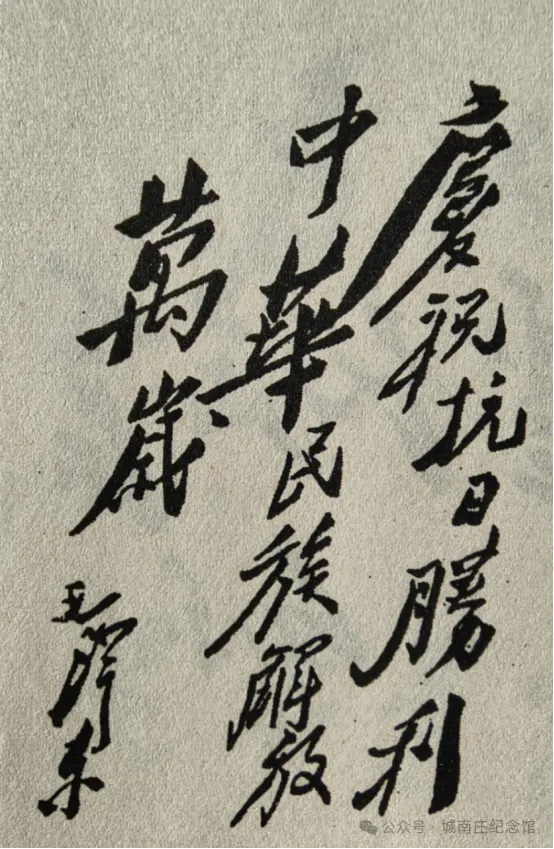 慶祝抗日勝利
中華民族解放
萬歲
毛澤东
公众号·城南庄纪念馆